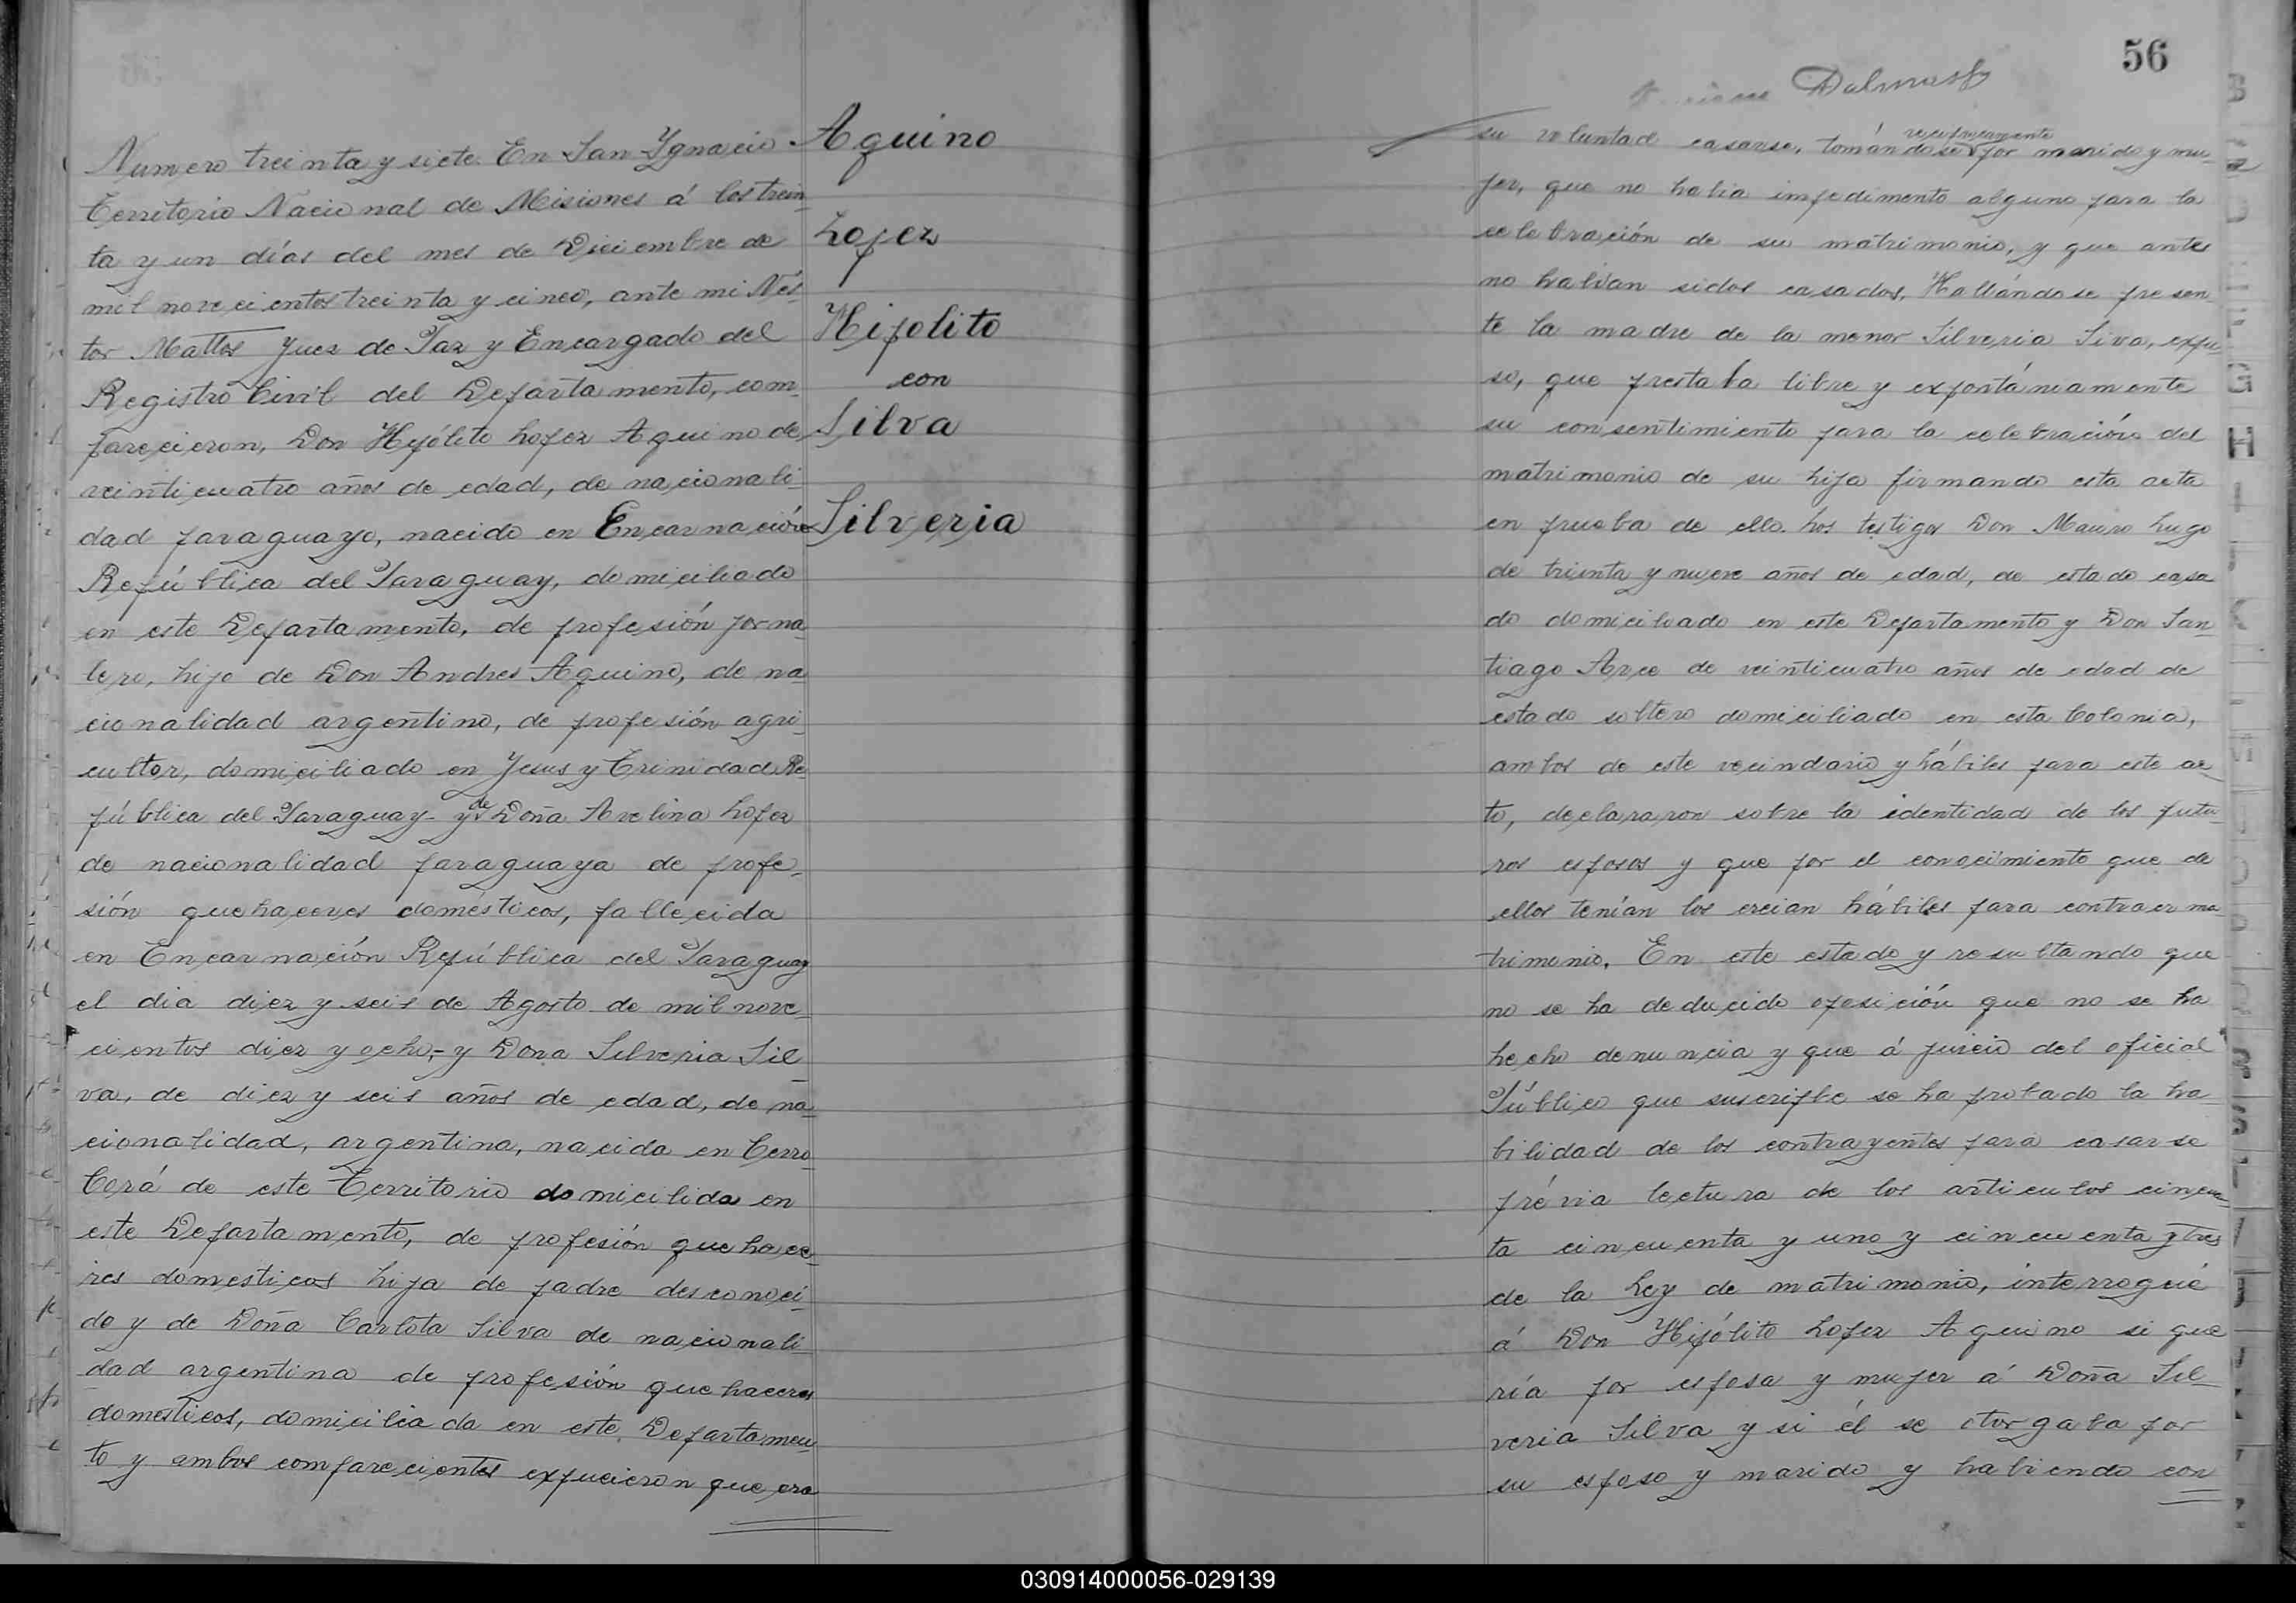 Numero treinta y siete. En San Ygnacio
Territorio Nacional de Misiones á los trein-
ta y un días del mes de Diciembre de
mil novecientos treinta y cinco, ante mi Nés-
tor Mattos Juez de Paz y Encargado del
Registro Civil del Departamento, com-
parecieron, Don Hipólito Lopez Aquino de
veinticuatro años de edad, de nacionali-
dad paraguayo, nacido en Encarnación
República del Paraguay, domiciliado
en este Departamento, de profesión jorna-
lero, hijo de Don Andres Aquino, de na-
cionalidad argentino, de profesión agri-
cultor, domiciliado en Jesus y Trinidad Re-
pública del Paraguay- y de Doña Avelina Lopez
de nacionalidad paraguaya de profe-
sión quehaceres domésticos, fallecida
en Encarnación República del Paraguay
el dia diez y seis de Agosto de mil nove-
cientos diez y ocho,- y Dona Silveria Sil
va, de diez y seis años de edad, de na-
cionalidad, argentina, nacida en Cerro
Corá de este Territorio domicilida en
este Departamento, de profesión quehace-
res domesticos hija de padre desconoci-
do y de Doña Carlota Silva de nacionali-
dad argentina de profesión quehaceres
domésticos, domiciliada en este Departamen-
to y ambos comparecientes expucieron que era
Aquino
Lopez
Hipolito
con
Silva
Silveria
56
Dalmasty
su voluntad casarse, tomándose recíprocamente por marido y mu-
jer, que no habia impedimento alguno para la
celebración de su matrimonio, y que antes
no habían sidos casados, Hallándose presen-
te la madre de la menor Silveria Siva, expu-
so, que prestaba libre y expontáneamente
su consentimiento para la celebración del
matrimonio de su hija firmando esta acta
en prueba de ello. Los testigos Don Mauro Lugo
de trienta y nueve años de edad, de estado casa
do domiciliado en este Departamento y Don San-
tiago Arce de veinticuatro años de edad de
estado soltero domiciliado en esta Colonia,
ambos de este vecindario y hábiles para este ac-
to, declararon sobre la identidad de los futu-
ros esposos y que por el conocimiento que de
ellos tenían los creian hábiles para contraer ma-
trimonio. En este estado y resultando que
no se ha deducido oposición que no se ha
hecho denuncia y que á juicio del oficial
Público que suscripbe se ha probado la ha-
bilidad de los contrayentes para casarse
prévia lectura de los articulos cincuen-
ta cincuenta y uno y cincuenta y tres
de la Ley de matrimonio, interrogué
á Don Hipólito Lopez Aquino si que
ría por esposa y mujer á Doña Sil-
veria Silva y si él se otorgaba por
su esposo y marido y habiendo con
B
G
H
I
K
S
030914000056-029139